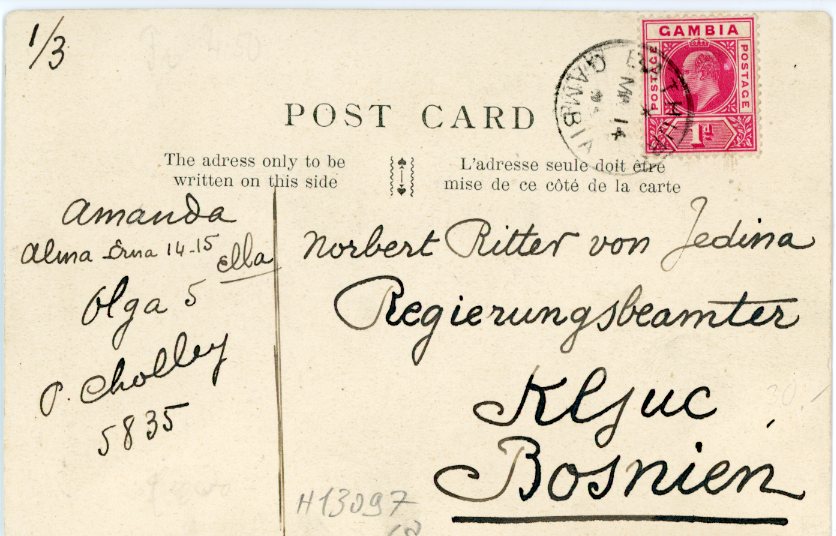 1/3
GAMBIA
POSTAGE
POSTAGE
1d
GAMBIA
MR 14
POST CARD
The adress only to be
written on this side
L'adresse seule doit être
mise de ce côté de la carte
Amanda
Alma Erna 14-15
Ella
Olga 5
P. Cholley
5835
Norbert Ritter von Jedina
Regierungsbeamter
Kljuc
Bosnien
H13097